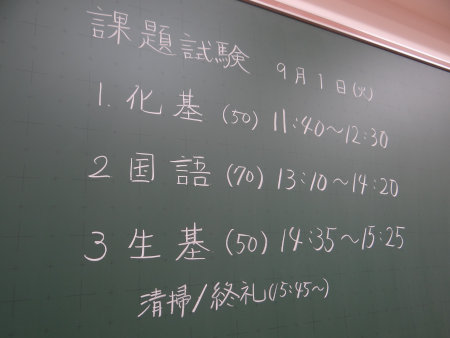 課題試験 9月1日(火)
1. 化基 (50) 11:40～12:30
2 国語 (70) 13:10～14:20
3 生基 (50) 14:35～15:25
清掃/終礼(15:45～)